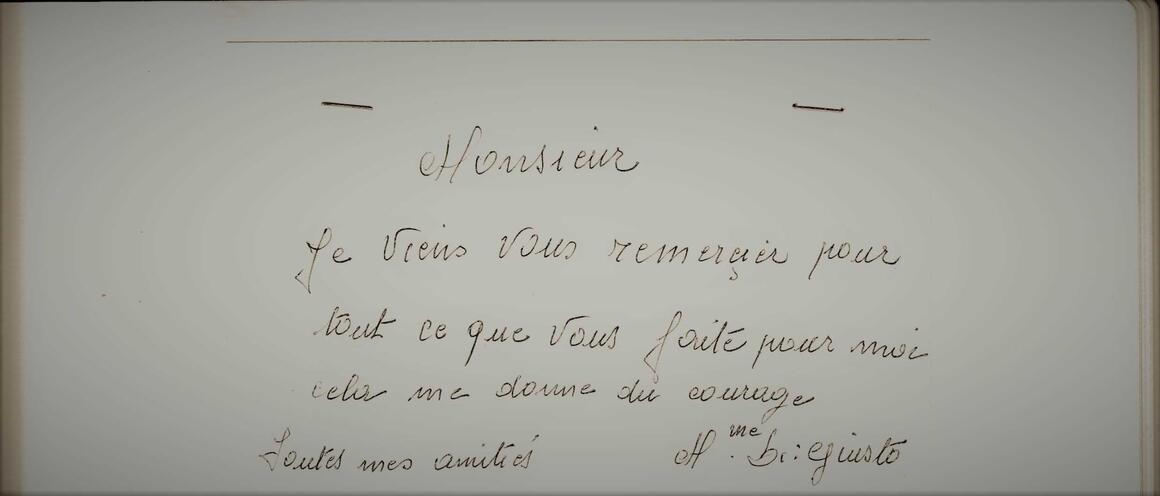 Monsieur
Je viens vous remerçier pour
tout ce que vous faité pour moi
cela me donne du courage
Toutes mes amitiés Mme Di: Giusto